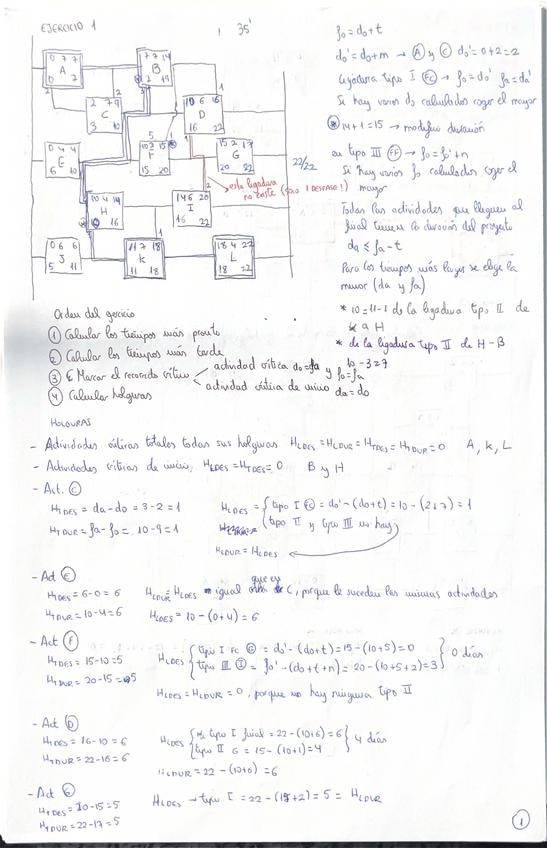 EJERCICIO 1
35'
0 7 7
A
2
7 7 14
B
2 7 9
C
3 10
10 6 16
D
16 22
0 4 4
E
6 10
5
F
15 20
15 2 17
G
20 22
22/22
esta ligadura
no existe
10 4 14
H
16
14 6 20
I
16 22
0 6 6
J
5 11
11 7 18
K
11 18
18 4 22
L
18 22
fo = do + t
do' = do + m → A y C do' = 0+2 = 2
Ligadura tipo I FC → fo = do' fa = da'
Si hay varios do calculados coger el mayor
* 14+1 = 15 → modifico duración
en tipo III FF → fo = fo' + n
Si hay varios fo calculados coger el
mayor
Todas las actividades que lleguen al
final tienen la duración del proyecto
da ≤ fa - t
Para los tiempos más largos se elige la
menor (da y fa)
* 10 = 11-1 de la ligadura tipo II de
K a H
* de la ligadura tipo II de H-B
10 - 3 = 7
Orden del ejercicio
1 Calcular los tiempos más pronto
2 Calcular los tiempos más tarde
3 Marcar el recorrido crítico
actividad crítica do = da y fo = fa
actividad crítica de inicio da = do
4 Calcular holguras
HOLGURAS
- Actividades críticas totales todas sus holguras HLDES = HLDUR = HTDES = HTDUR = 0 A, K, L
- Actividades críticas de inicio, HLDES = HTDES = 0 B y H
- Act. C
HTDES = da - do = 3-2 = 1
HTDUR = fa - fo = 10-9 = 1
HLDES = { tipo I E = do' - (do+t) = 10 - (2+7) = 1
tipo II y tipo III no hay
HLDUR = HLDES
- Act E
HTDES = 6-0 = 6
HTDUR = 10-4 = 6
HLDUR = HLDES igual que en C, porque le suceden las mismas actividades
HLDES = 10 - (0+4) = 6
- Act F
HTDES = 15-10 = 5
HTDUR = 20-15 = 5
HLDES { tipo I FC G = do' - (do+t) = 15 - (10+5) = 0
tipo III I = fo' - (do+t+n) = 20 - (10+5+2) = 3 } 0 días
HLDES = HLDUR = 0, porque no hay ninguna tipo II
- Act D
HTDES = 16-10 = 6
HTDUR = 22-16 = 6
HLDES { tipo I final = 22 - (10+6) = 6
tipo II G = 15 - (10+1) = 4 } 4 días
HLDUR = 22 - (10+6) = 6
- Act G
HTDES = 20-15 = 5
HTDUR = 22-17 = 5
HLDES → tipo I = 22 - (15+2) = 5 = HLDUR
1